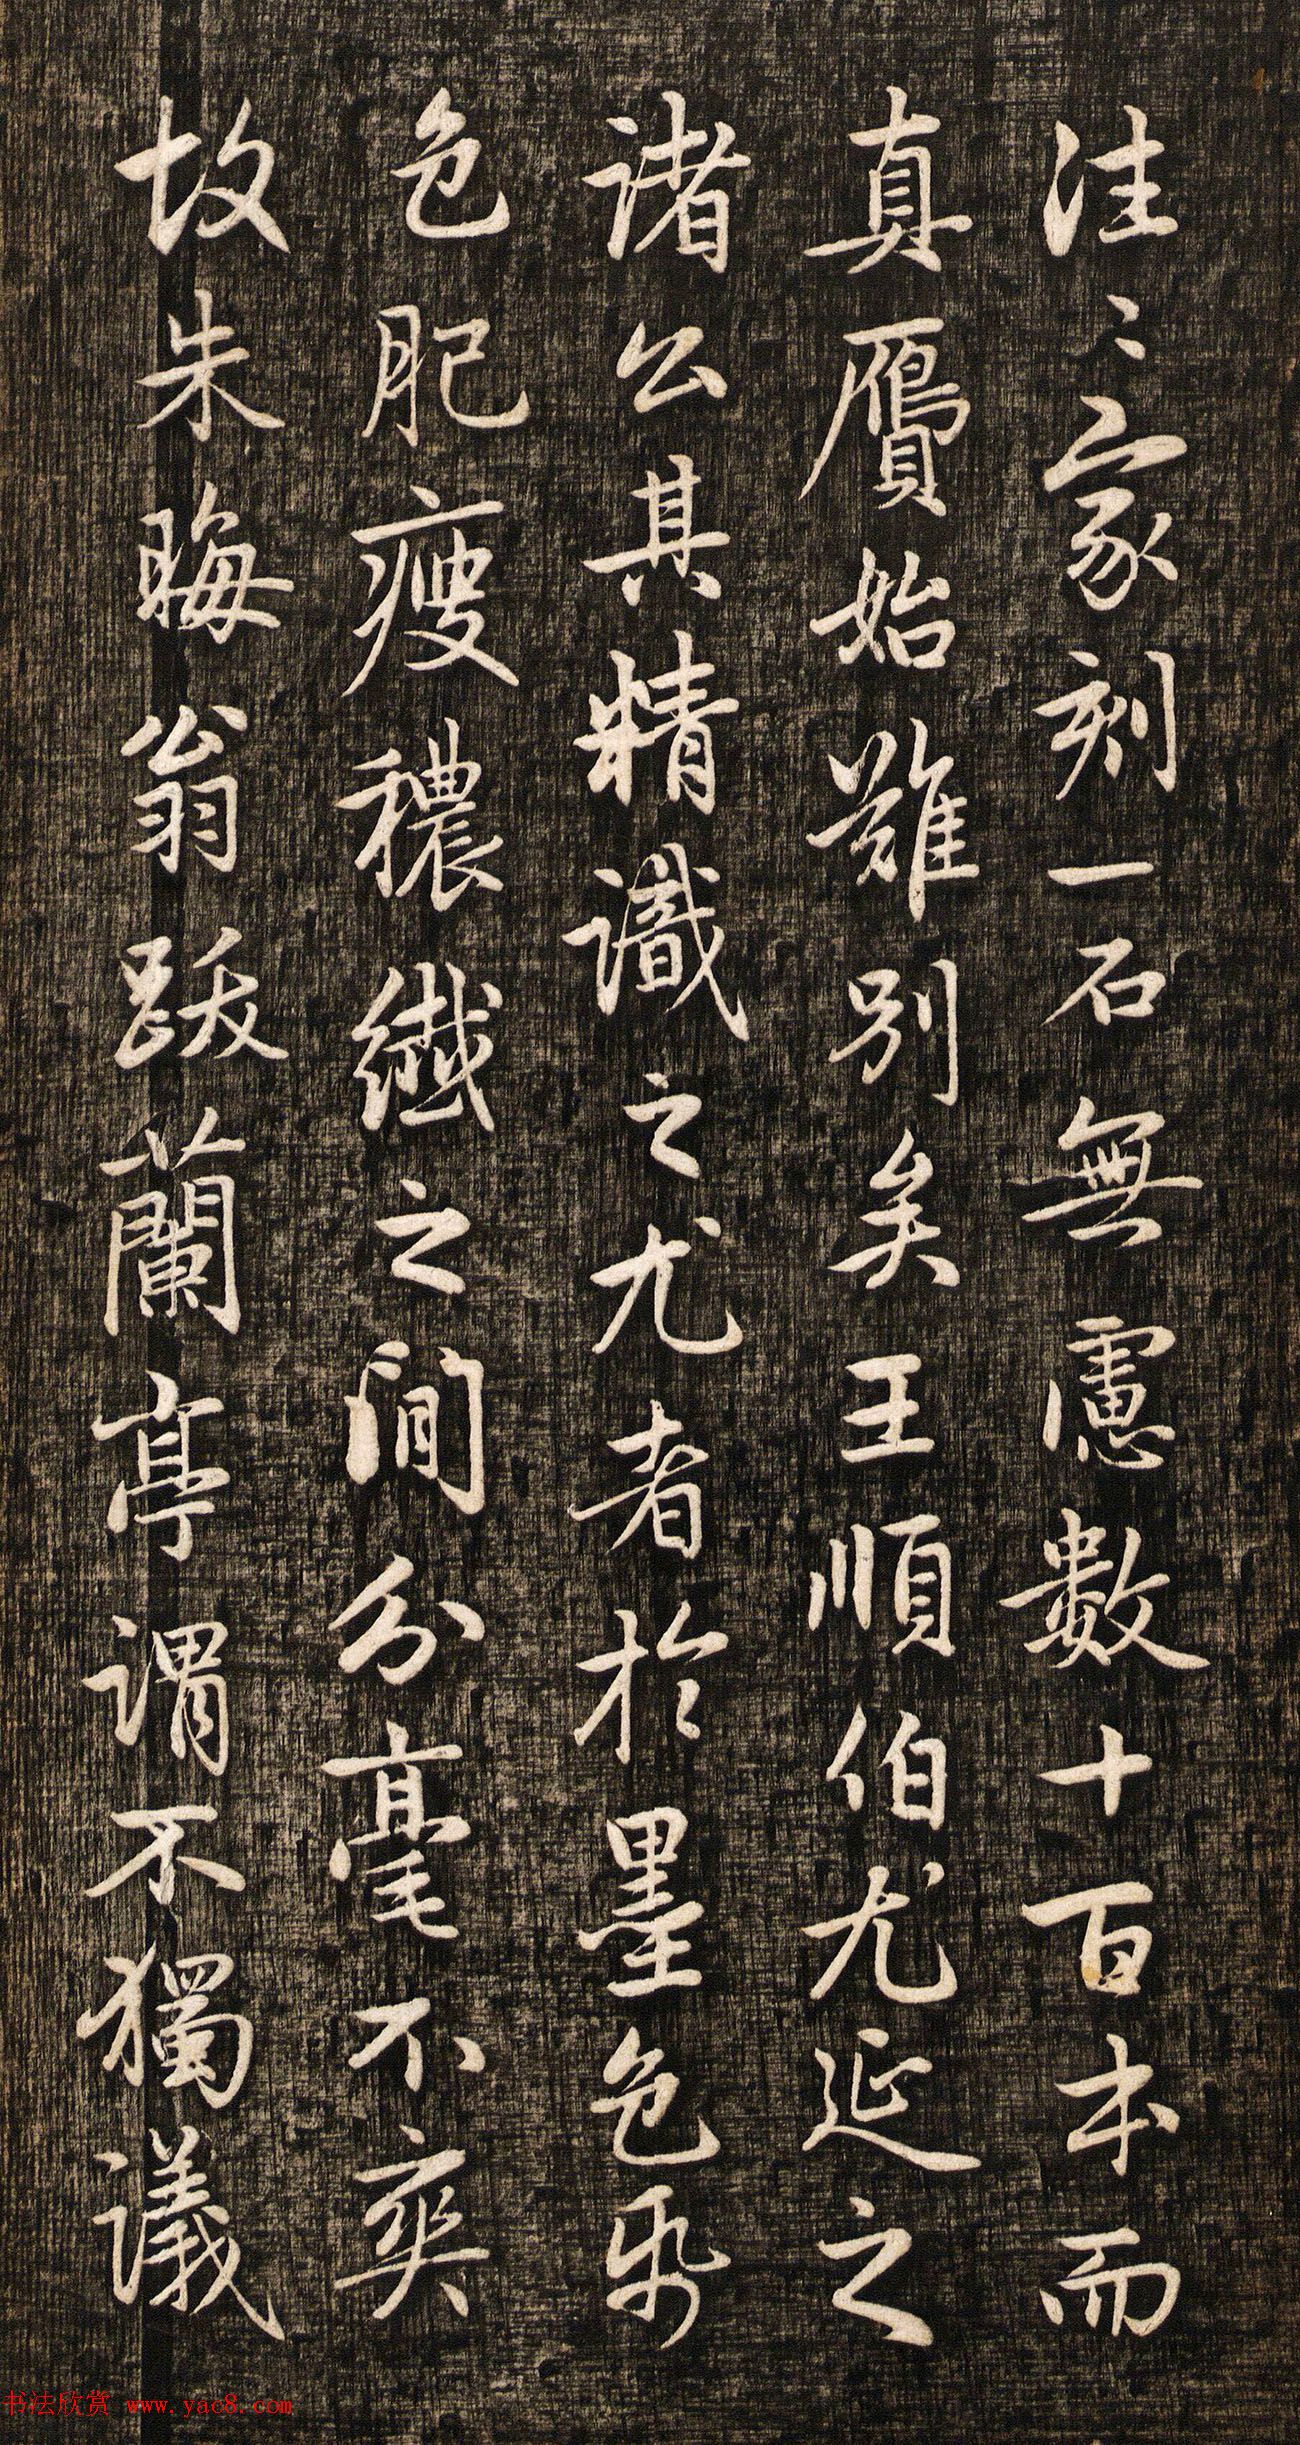 往〻家刻一石無慮數十百本而
真贗始難別矣王順伯尤延之
諸公其精識之尤者於墨色𠃔
色肥瘦穠纖之間分毫不爽
故朱晦翁跋蘭亭謂不獨議
书法欣赏 www.yac8.com